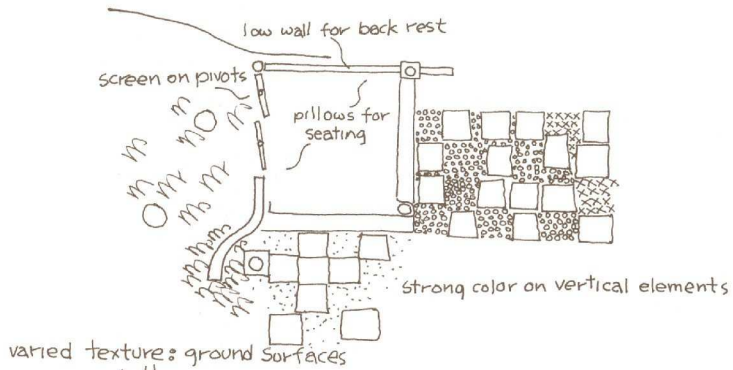 low wall for back rest
screen on pivots
pillows for
seating
strong color on vertical elements
varied texture: ground surfaces